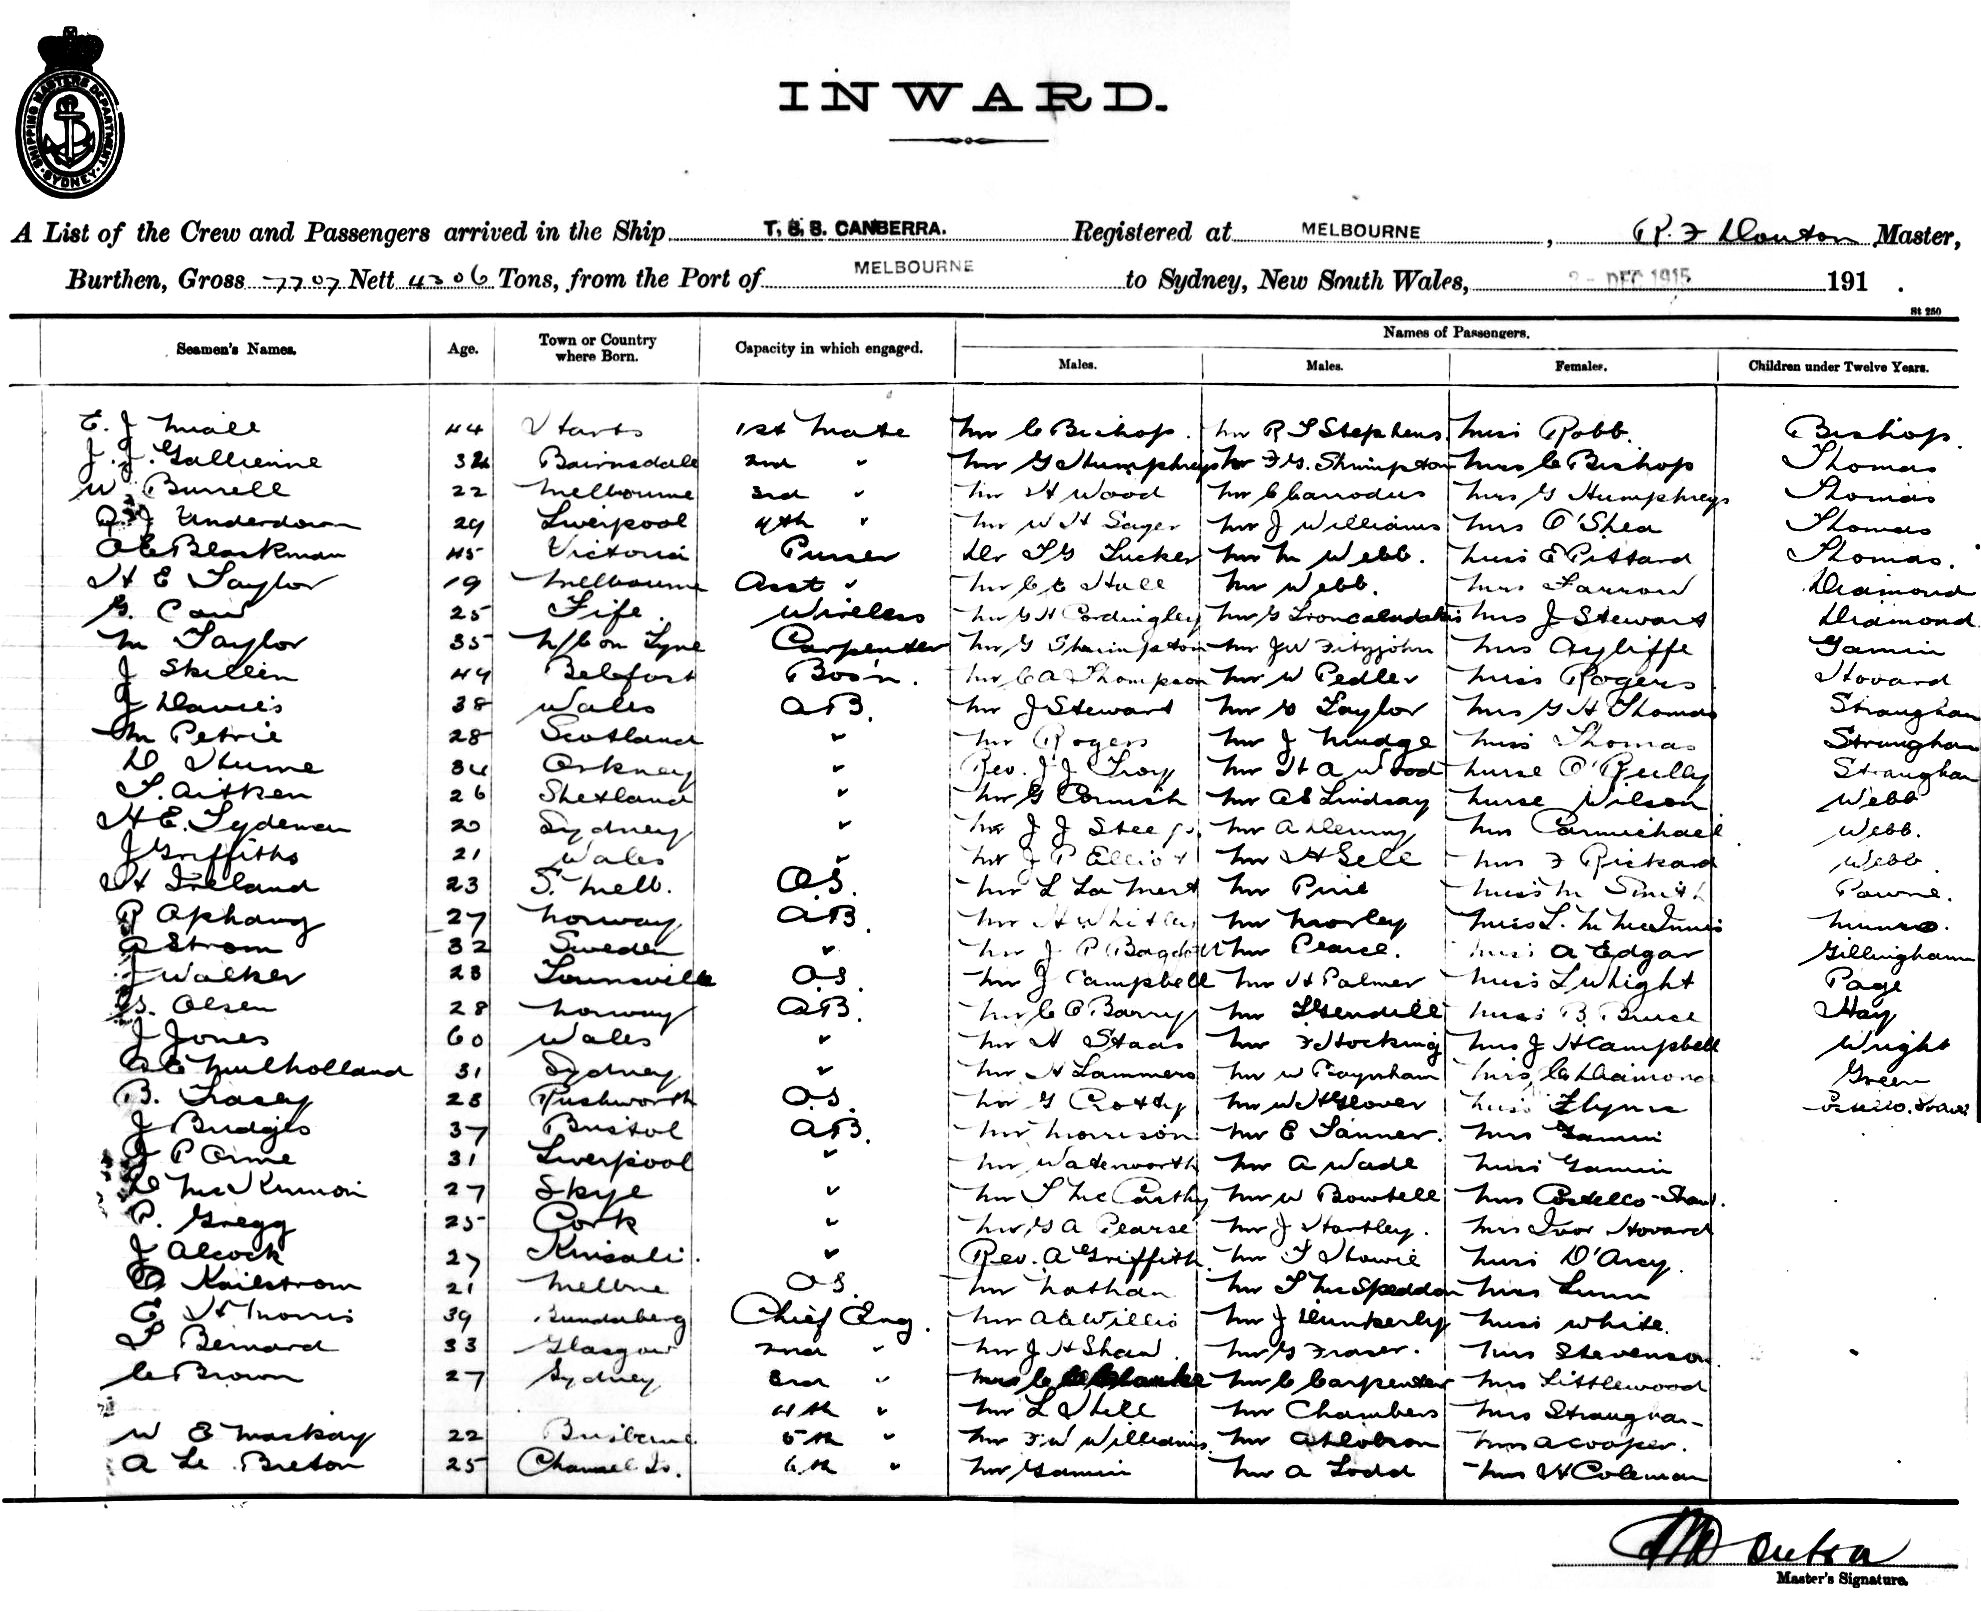 SHIPPING MASTERS DEPARTMENT SYDNEY
INWARD.
A List of the Crew and Passengers arrived in the Ship T.S.S. CANBERRA. Registered at MELBOURNE, Master,
Burthen, Gross 7707 Nett 4306 Tons, from the Port of MELBOURNE to Sydney, New South Wales, DEC 1915 191 .
St 250
Seamen's Names. Age. Town or Country where Born. Capacity in which engaged. Names of Passengers.
Males. Males. Females. Children under Twelve Years.
E. J 44 1st Mate Mr C Bishop. Mr R S Stephens. Miss Robb. Bishop.
J. J. Gallienne Bairnsdale 2nd " Mr G Humphreys Mr F G. Shrimpton Mrs C Bishop Thomas
W. Burrell 22 Melbourne 3rd " Mr H Wood Mr C Carrodus Mrs G Humphreys Thomas
Underdown 29 Liverpool 4th " Mr W H Sager Mr J Williams Mrs O'Shea Thomas
A C Blackman 45 Victoria Purser Dr T G Tucker Mr M Webb. Miss E Pittard Thomas.
H E Taylor 19 Melbourne Asst " Mr C C Hall Mr Webb. Mrs Farrow Diamond
G. Caw 25 Fife Wireless Mr G H Cordingley Mr G Mrs J Stewart Diamond
M Taylor 35 N/C on Tyne Carpenter Mr G Mr J W Fitzjohn Mrs Ayliffe Gamin
J Skillin 44 Belfast Bos'n. Mr C A Thompson Mr W Pedler Miss Rogers Hovard
J Davies 38 Wales A.B. Mr J Stewart Mr G Taylor Mrs G H Thomas Straughan
M Petrie 28 Scotland " Mr Rogers Mr J Mudge Miss Thomas Straughan
D Hume 34 Orkney " Rev. J J Troy Mr H A Wood Nurse O'Reilly Straughan
T. Aitken 26 Shetland " Mr G Cornish Mr A E Lindsay Nurse Wilson Webb
H E. Tydeman 20 Sydney " Mr J J Mr A Deniny Mrs Carmichael Webb.
J Griffiths 21 Wales " Mr J P Elliot Mr H Sell Mrs F Rickard Webb
H Ireland 23 S. Melb. O.S. Mr L La Mert Mr Pirie Miss M Smith
R Aphaug 27 Norway A.B. Mr H Whitley Mr Morley Miss L. M McInnis Munro.
A Strom 32 Sweden " Mr J P Mr Pearce. Miss A Edgar Gillingham
J Walker 23 Townsville O.S. Mr J Campbell Mr H Palmer Miss L Whight Page
Olsen 28 Norway A.B. Mr C O Barry Mr Miss B Bruce Hay
J Jones 60 Wales " Mr H Staas Mr F Hocking Mrs J H Campbell Wright
Mulholland 31 Sydney " Mr H Lammers Mr W Paynham Mrs C Diamond Green
B. Tracey 28 Rushworth O.S. Mr G Crotty Mr W H Glover Miss Flynn
J Bridges 37 Bristol A.B. Mr Morrison Mr E Tanner. Mrs Gamin
J P Orme 31 Liverpool " Mr Watenworth Mr A Wade Miss Gamin
D McKinnon 27 Skye " Mr T McCarthy Mr W Bowtell Mrs Costello-Shaw.
P. Gregg 25 Cork " Mr G A Pearse Mr J Hartley. Mrs Ivor Hovard
J Alcock 27 Kinsale. " Rev. A Griffith Mr T Howie Miss D'Arcy.
Kailstrom 21 Melbne O.S. Mr Nathan Mr T McSpeddon Miss Lunn
E H Morris 39 Bundaberg Chief Eng. Mr A C Willis Mr J Dunkerly Miss White.
T Bernard 33 Glasgow 2nd " Mr J H Shaw. Mr G Fraser. Miss Stevenson.
C Brown 27 Sydney 3rd " Mr C Carpenter Mrs Littlewood
4th " Mr L Hill Mr Chambers Mrs
W E Mackay 22 Brisbane 5th " Mr F W Williams. Mr A Hobson Mrs A Cooper.
A Le Breton 25 Channel Is. 6th " Mr Gamin Mr A Todd Mrs H Coleman
Master's Signature.